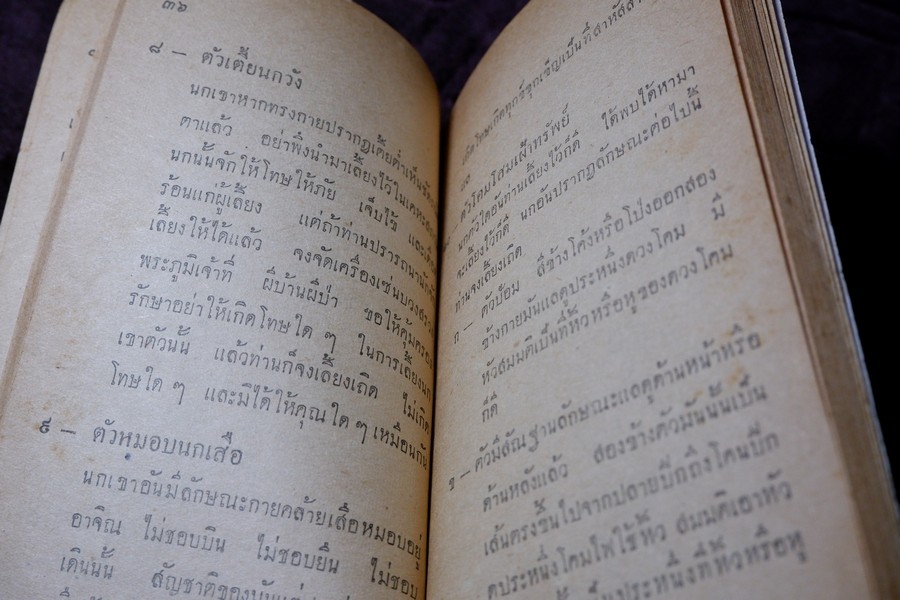 ๓๖
๘ – ตัวเตี้ยนกวัง
นกเขาหากทรงกายปรากฏเตี้ยต่ำเห็นชัด
ตาแล้ว อย่าพึ่งนำมาเลี้ยงไว้ในเคหะ
นกนั้นจักให้โทษให้ภัย เจ็บไข้ และเดือด
ร้อนแก่ผู้เลี้ยง แต่ถ้าท่านปรารถนานัก
เลี้ยงให้ได้แล้ว จงจัดเครื่องเซ่นบวงสรวง
พระภูมิเจ้าที่ ผีบ้านผีป่า ขอให้คุ้มครอง
รักษาอย่าให้เกิดโทษใด ๆ ในการเลี้ยงนก
เขาตัวนั้น แล้วท่านก็จงเลี้ยงเถิด ไม่เกิด
โทษใด ๆ และมิได้ให้คุณใด ๆ เหมือนกัน
๙ – ตัวหมอบนกเสือ
นกเขาอันมีลักษณะกายคล้ายเสือหมอบอยู่
อาจิณ ไม่ชอบบิน ไม่ชอบยืน ไม่ชอบ
เดินนั้น สัญชาติของมัน
เกิดทุกข์ขุกเข็ญเป็นที่สาหัส
ตัวโคมโสมเฝ้าทรัพย์
นกตัวใดอันท่านเลี้ยงไว้ก็ดี ได้พบได้หามา
จะเลี้ยงไว้ก็ดี นกอันปรากฏลักษณะต่อไปนี้
ท่านจงเลี้ยงเถิด
ก – ตัวป้อม สีข้างโค้งหรือโป่งออกสอง
ข้างกายมันแลดูประหนึ่งดวงโคม มี
หัวสมมติเป็นที่หิ้วหรือหูของดวงโคม
ก็ดี
ข – ตัวมีสัณฐานลักษณะแลดูด้านหน้าหรือ
ด้านหลังแล้ว สองข้างตัวมันนั้นเป็น
เส้นตรงขึ้นไปจากปลายปีกถึงโคนปีก
ดุประหนึ่งโคมไฟใช้หิ้ว สมมติเอาหัว
ประหนึ่งที่หิ้วหรือหู